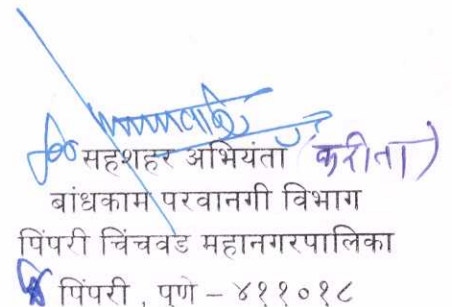 सहशहर अभियंता करीता)
बांधकाम परवानगी विभाग
पिंपरी चिंचवड महानगरपालिका
पिंपरी , पुणे – ४११०१८